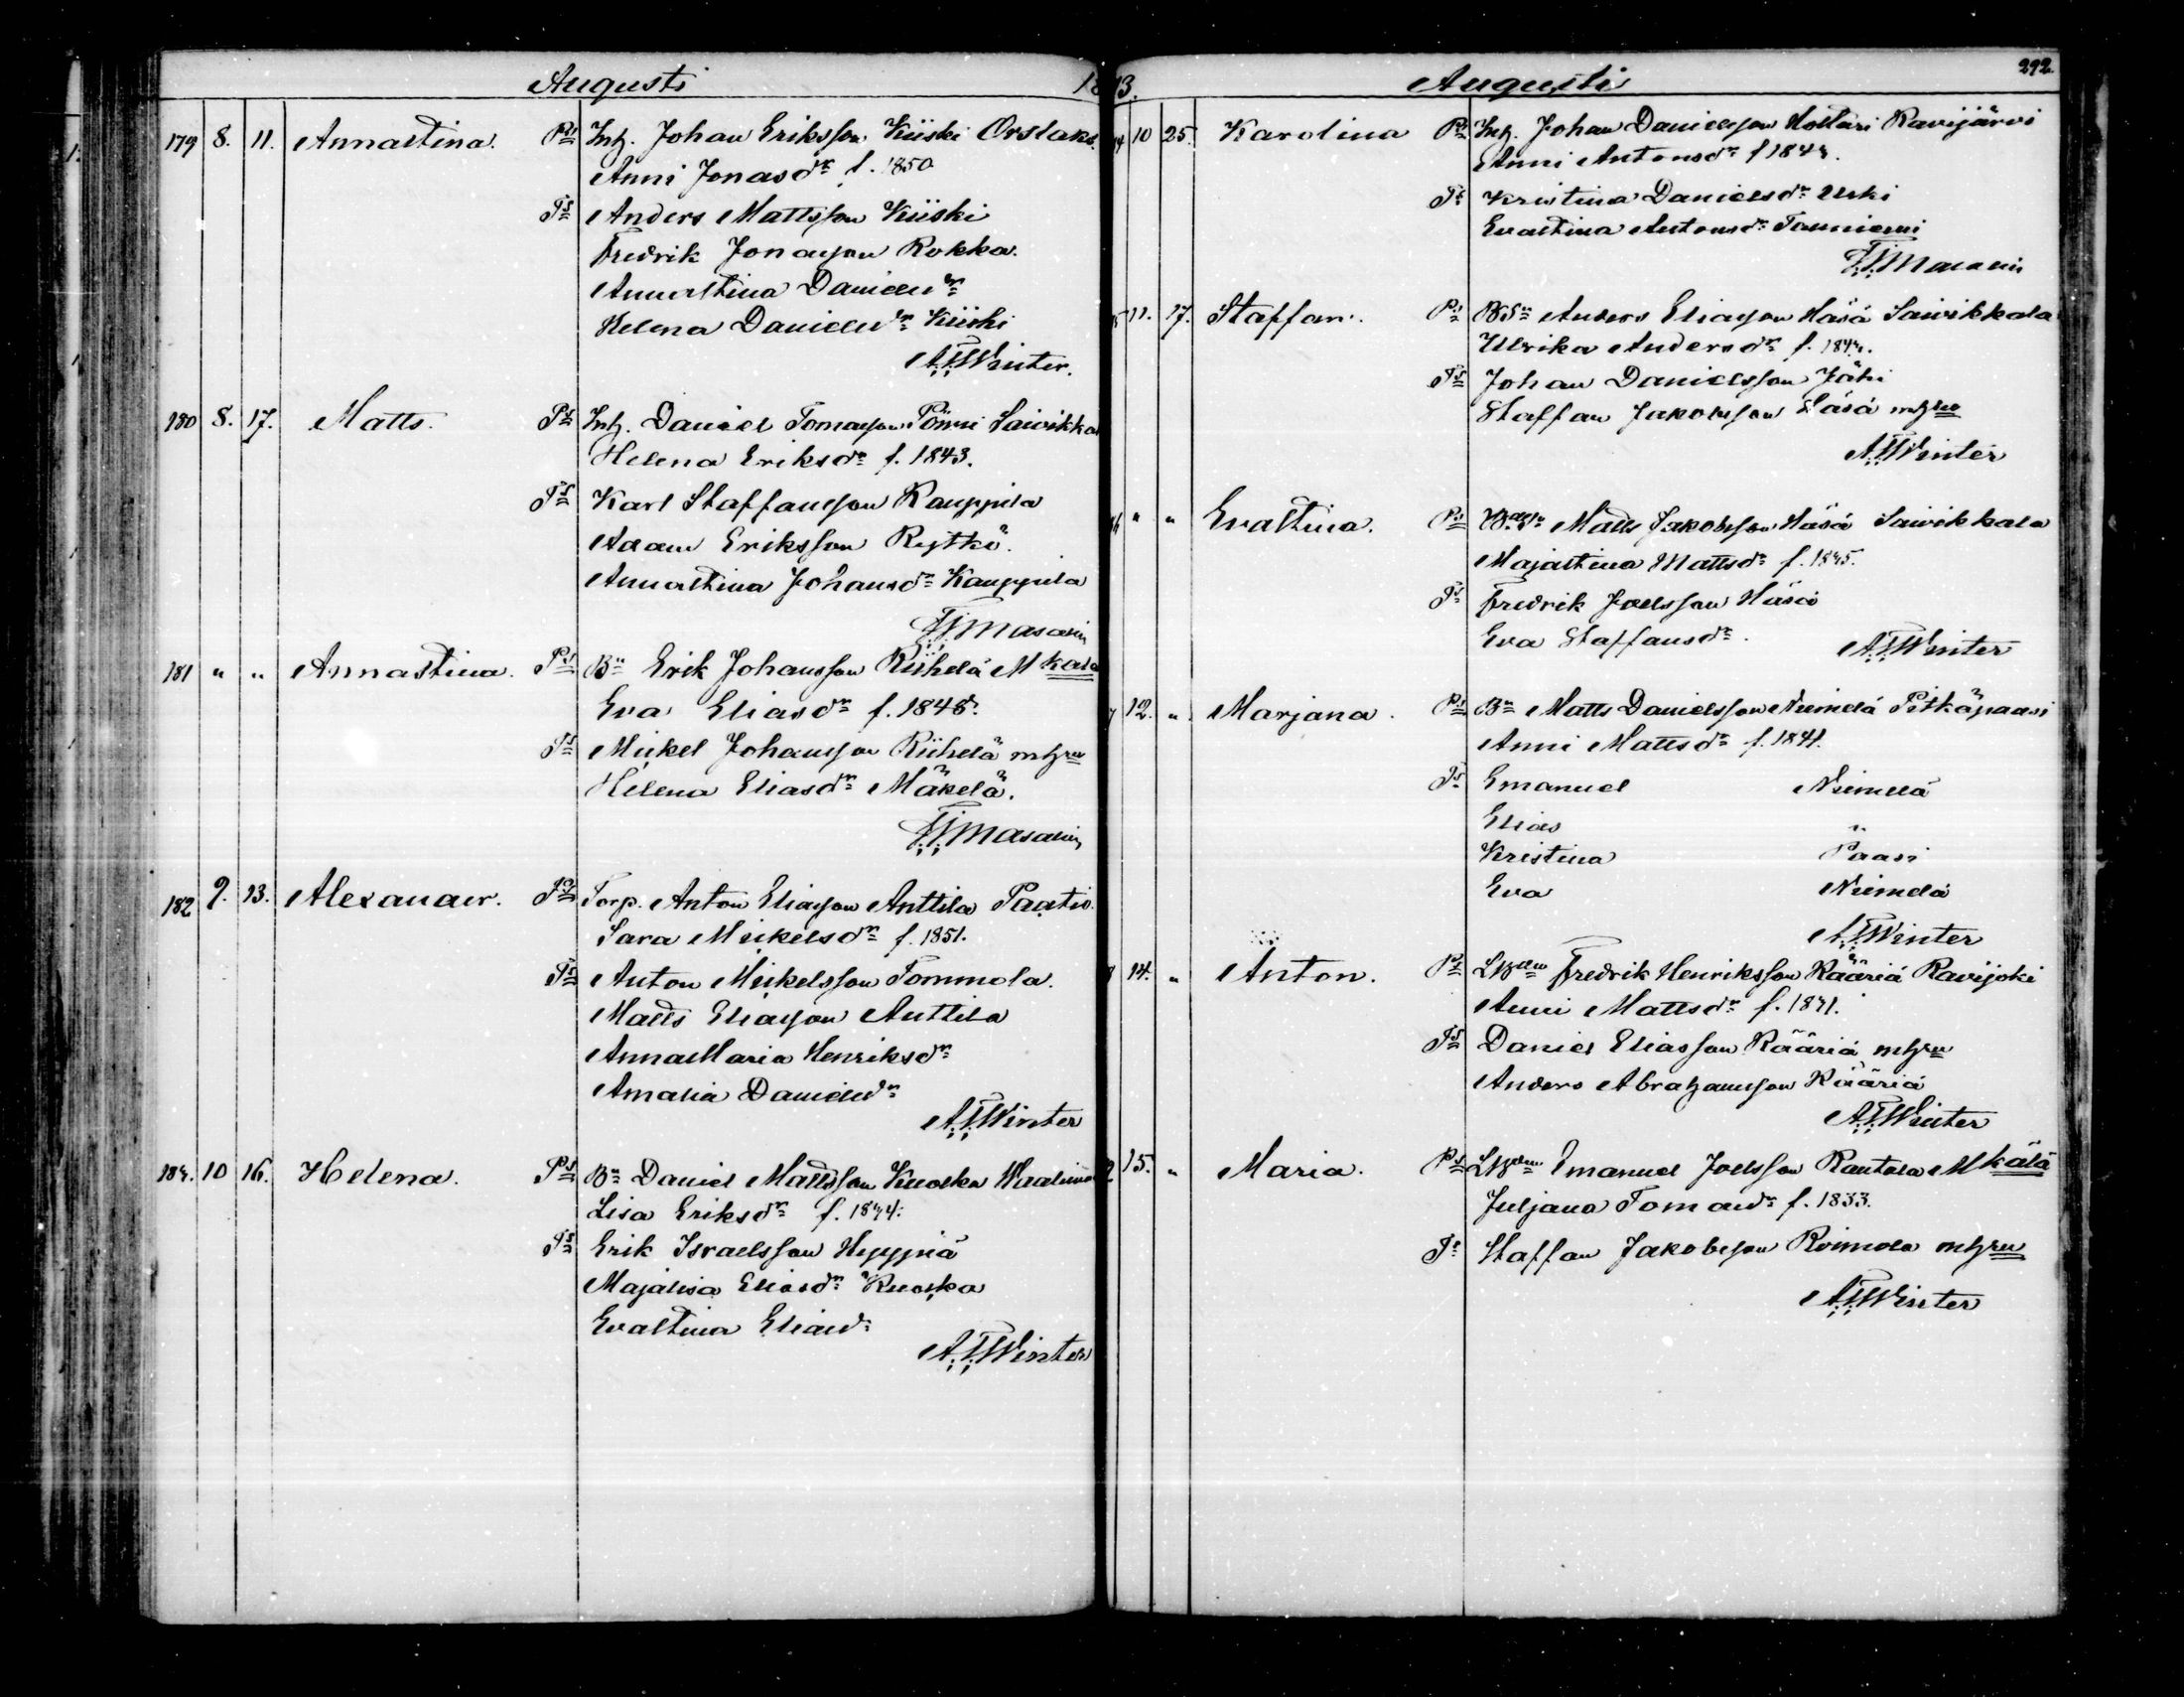 Augusti 18
179 8. 11. Annastina. Ps Inh. Johan Eriksson Kiiski Orslaks.
Anni Jonasdr f. 1850
Ts Anders Mattsson Kiiski
Fredrik Jonasson Rokka.
Annastina Danielsdr
Helena Danielsdr Kiiski
A.F.Winter.
180 8. 17. Matts. Ps Inh. Daniel Tomasson Pönni Saivikka
Helena Eriksdr f. 1843.
Ts Karl Staffansson Kauppila
Adam Eriksson Rytkö.
Annastina Johansdr Kauppila
F.J.Masalin
181 " " Annastina. Ps Bn Erik Johansson Riihelä Mkala
Eva Eliasdr f. 1848.
Ts Mickel Johansson Riihelä mhru
Helena Eliasdr Mäkelä.
F.J.Masalin
182 9. 13. Alexander. Ps Torp. Anton Eliasson Anttila Paatio.
Sara Mickelsdr f. 1851.
Ts Anton Mickelsson Tommola.
Matts Eliasson Anttila
AnnaMaria Henriksdr
Amalia Danielsdr
A.F.Winter
183. 10 16. Helena. Ps Bn Daniel Mattsson Kuoska Waalima
Lisa Eriksdr f. 1844.
Ts Erik Israelsson Hyypiä
Majalisa Eliasdr Kuoska
Evastina Eliasdr
A.F.Winter
73. Augusti 292.
84 10 25. Karolina Ps Inh. Johan Danielsson Mottari Ravijärvi
Anni Antonsdr f 1844.
Ts Kristina Danielsdr Uski
Evastina Antonsdr Tanniemi
F.J.Masalin
5 11. 17. Staffan. Ps Anders Eliasson Häsä Saivikkala
Ulrika Andersdr f. 1844.
Ts Johan Danielsson Jähi
Staffan Jakobsson Häsä mhru
A.F.Winter
86 " " Evastina. Ps Matts Jakobsson Häsä Saivikkala
Majastina Mattsdr f. 1845.
Ts Fredrik Joelsson Häsä
Eva Staffansdr.
A.F.Winter
7 12. " Marjana. Ps Bn Matts Danielsson Niemelä Pitkäpaasi
Anni Mattsdr f. 1841.
Ts Emanuel Niemelä
Elias "
Kristina Paasi
Eva Niemelä
A.F.Winter
8 14. " Anton. Ps LBdn Fredrik Henriksson Rääriä Ravijoki
Anni Mattsdr f. 1841.
Ts Daniel Eliasson Rääriä mhru
Anders Abrahamsson Rääriä
A.F.Winter
9 15. " Maria. Ps LBdn Emanuel Joelsson Rantala Mkälä
Juljana Tomasdr f. 1833.
Ts Staffan Jakobsson Roimola mhru
A.F.Winter